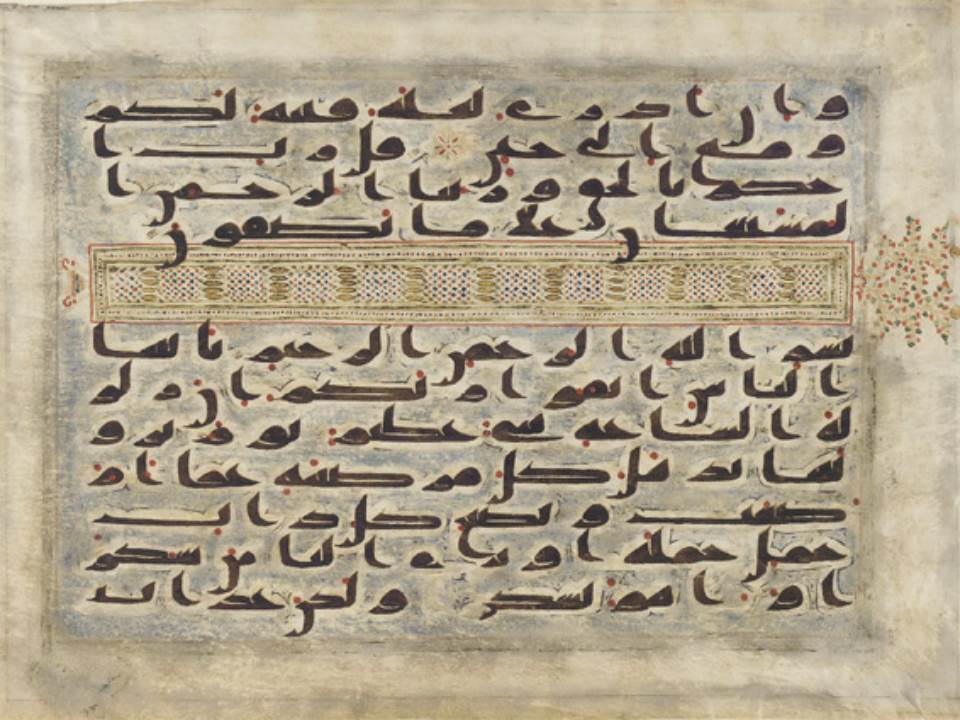 وان ادري لعله فتنه لكم
ومتع الى حين قل رب ا
حكم بالحق وربنا الرحمن ا
لمستعان على ما تصفون
بسم الله الرحمن الرحيم يايها
الناس اتقوا ربكم ان زلز
لة الساعة شي عظيم يوم ترو
نها تذهل كل مرضعة عما ار
ضعت وتضع كل ذات
حمل حملها وترى الناس سكر
ى وما هم بسكرى ولكن عذاب